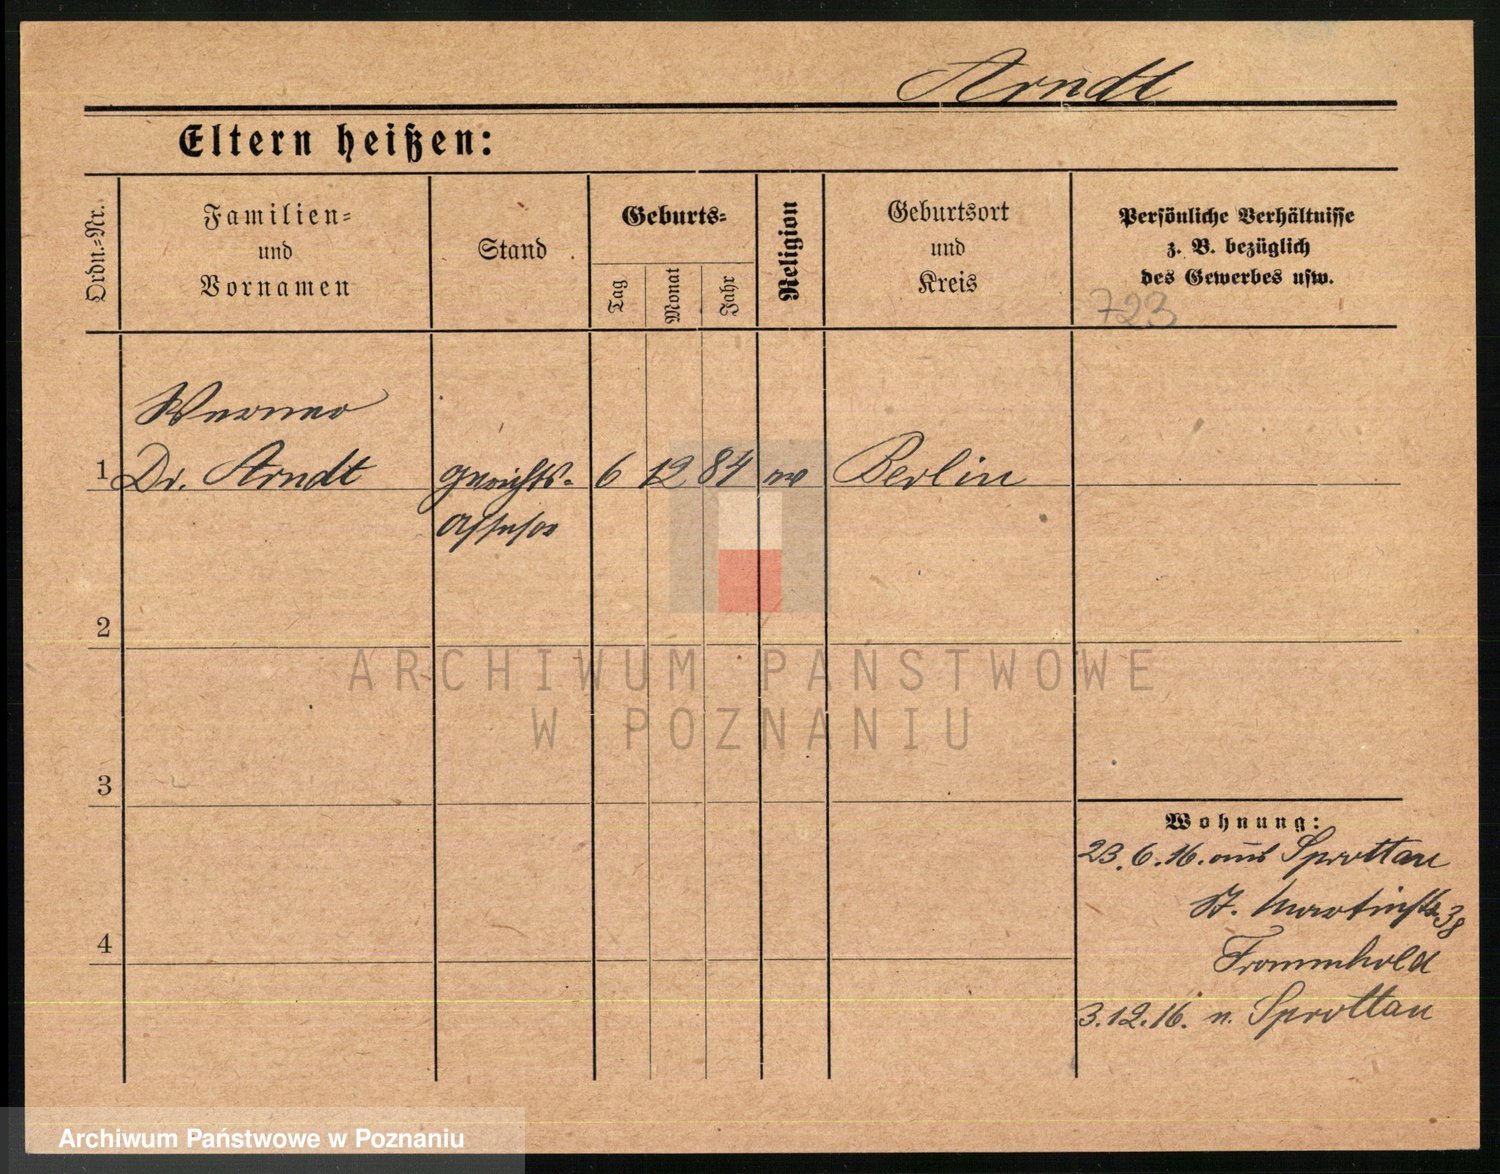 Arndt
Eltern heißen:
Ordn.-Nr.
Familien-
und
Vornamen
Stand
Geburts-
Tag
Monat
Jahr
Religion
Geburtsort
und
Kreis
Persönliche Verhältnisse
z. B. bezüglich
des Gewerbes usw.
723
Werner
1 Dr. Arndt Gerichts- 6 12 84 ev Berlin
Assessor
2
3
4
Wohnung:
23.6.16. aus Sprottau
St. Martinstr 38
Frommhold
3.12.16. n. Sprottau
ARCHIWUM PAŃSTWOWE
W POZNANIU
Archiwum Państwowe w Poznaniu